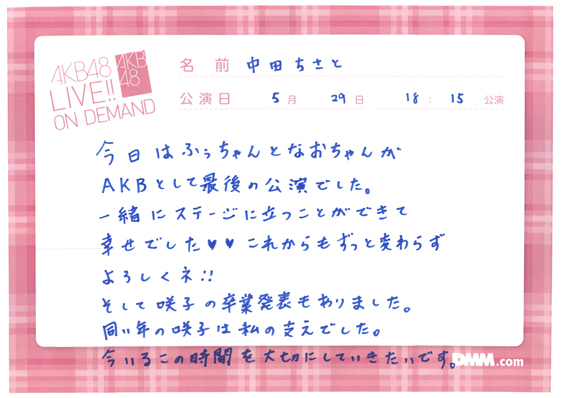 AKB48
LIVE!!
ON DEMAND
AKB
48
名前 中田ちさと
公演日 5月 29日 18:15 公演
今日はふぅちゃんとなおちゃんが
AKBとして最後の公演でした。
一緒にステージに立つことができて
幸せでした♥♥これからもずっと変わらず
よろしくネ!!
そして咲子の卒業発表もありました。
同い年の咲子は私の支えでした。
今いるこの時間を大切にしていきたいです。
DMM.com